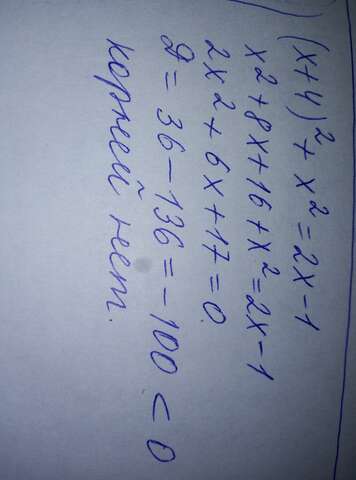 (x+4)² + x² = 2x-1
x² + 8x + 16 + x² = 2x-1
2x² + 6x + 17 = 0
D = 36 - 136 = -100 < 0
корней нет.